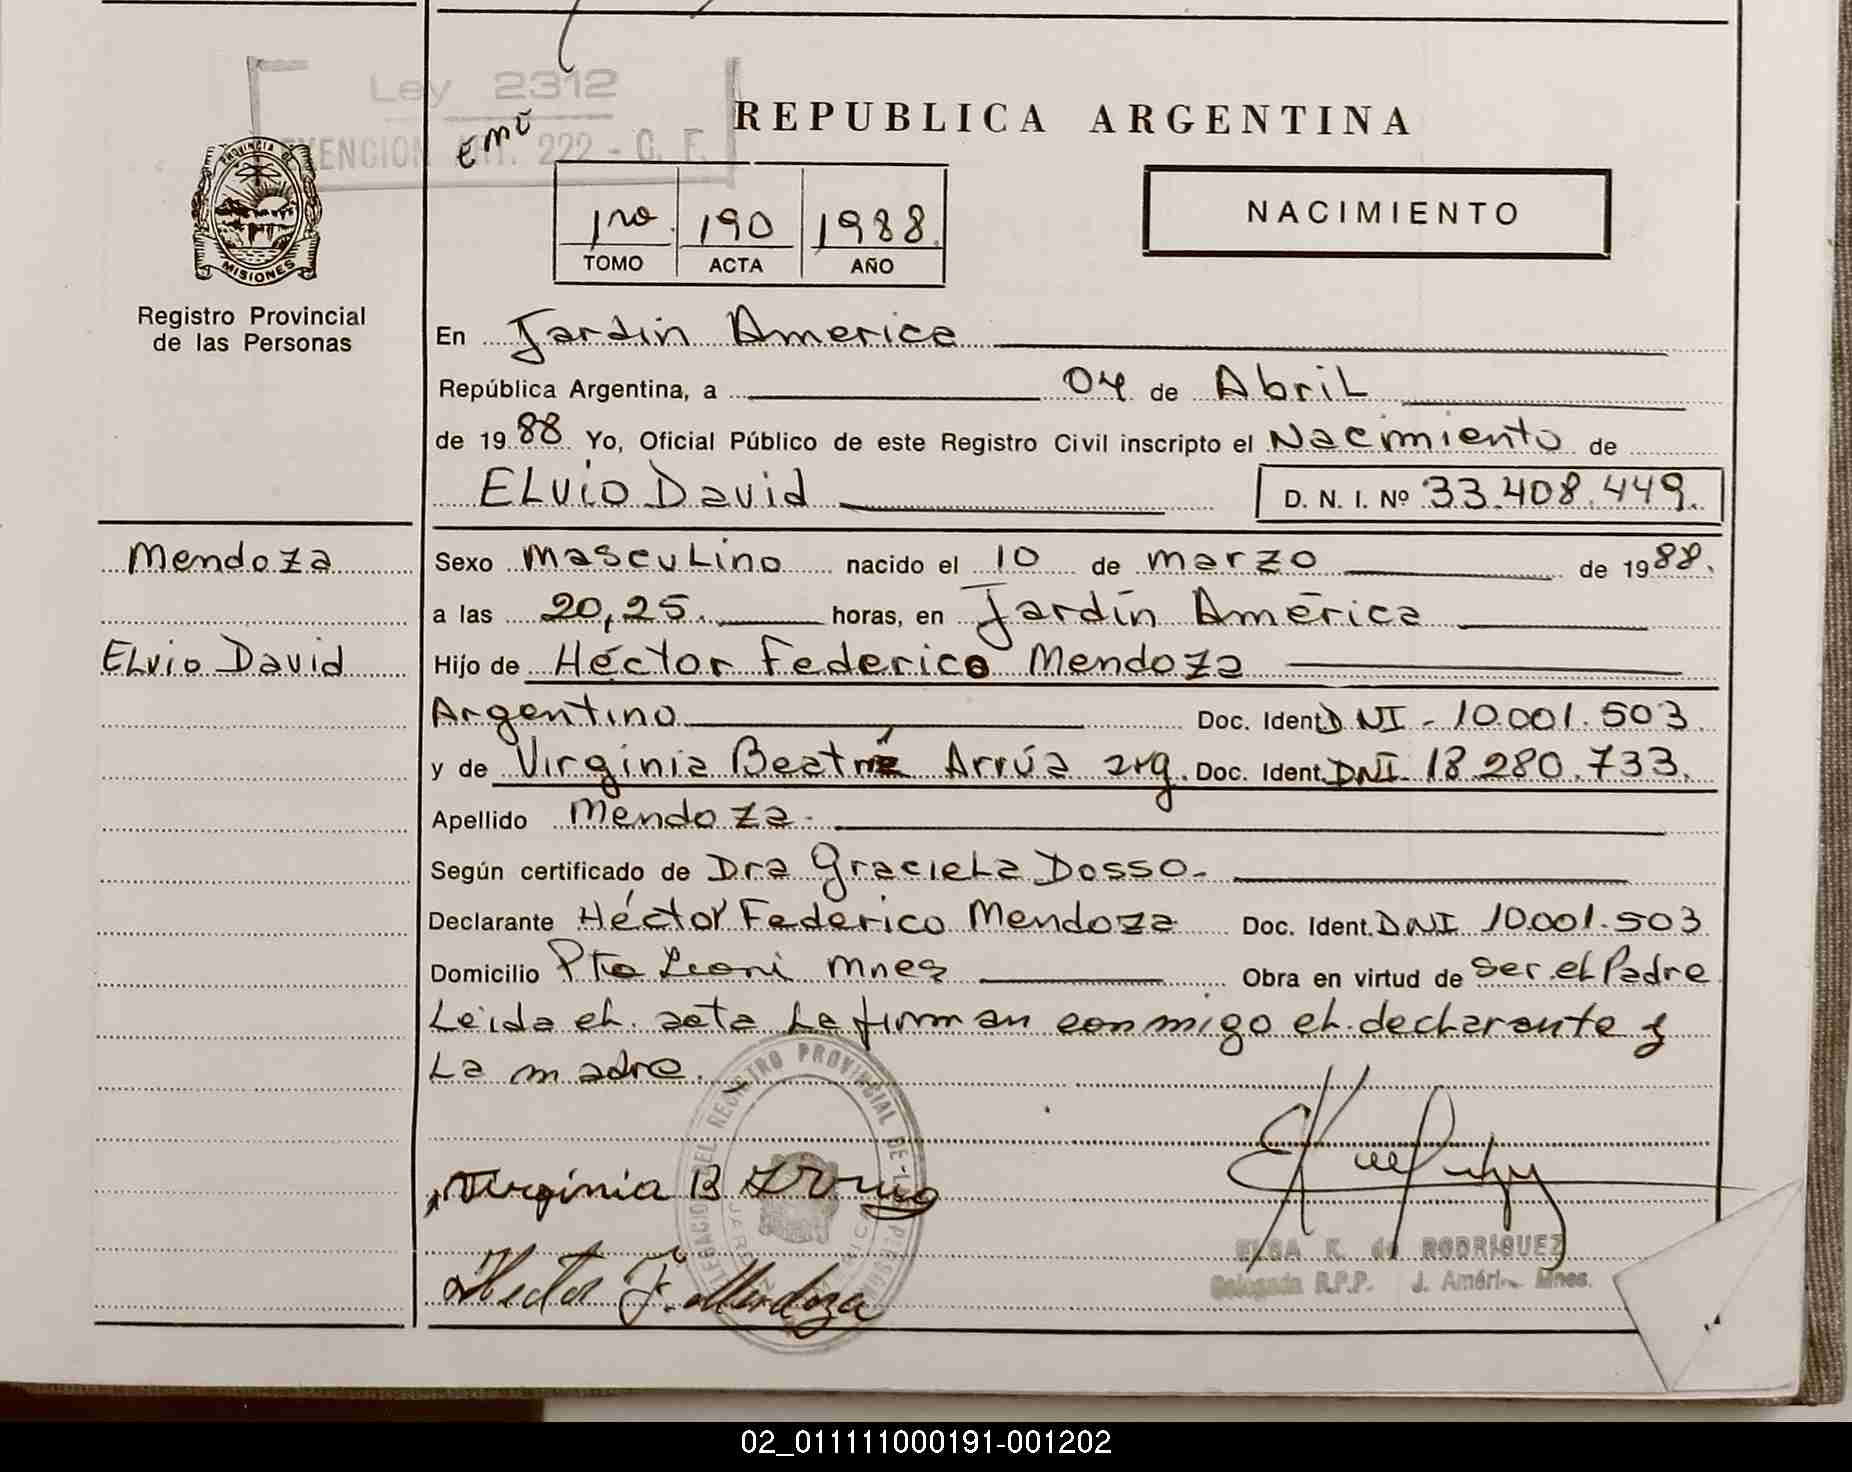 Ley 2312
EXENCION ART. 222 - C. F.
REPUBLICA ARGENTINA
PROVINCIA DE
MISIONES
Registro Provincial
de las Personas
1ro. 190 1988.
TOMO ACTA AÑO
NACIMIENTO
En Jardín America
República Argentina, a 04 de Abril
de 19 88 Yo, Oficial Público de este Registro Civil inscripto el Nacimiento de
Elvio David D. N. I. Nº 33.408.449.
Mendoza
Elvio David
Sexo masculino nacido el 10 de marzo de 19 88.
a las 20,25. horas, en Jardín América
Hijo de Héctor Federico Mendoza
Argentino Doc. Ident. DNI - 10.001.503
y de Virginia Beatríz Arrúa arg. Doc. Ident. DNI - 18.280.733.
Apellido Mendoza -
Según certificado de Dra Graciela Dosso -
Declarante Héctor Federico Mendoza Doc. Ident. DNI 10.001.503
Domicilio Pto Leoni Mnes Obra en virtud de ser el Padre
Leida el acta la firman conmigo el declarante y
la madre.
DELEGACION DEL REGISTRO PROVINCIAL DE LAS PERSONAS
Virginia B Arrua
Hector F. Mendoza
ELSA K. de RODRIGUEZ
Delegada R.P.P. J. Améri Mnes.
02_011111000191-001202